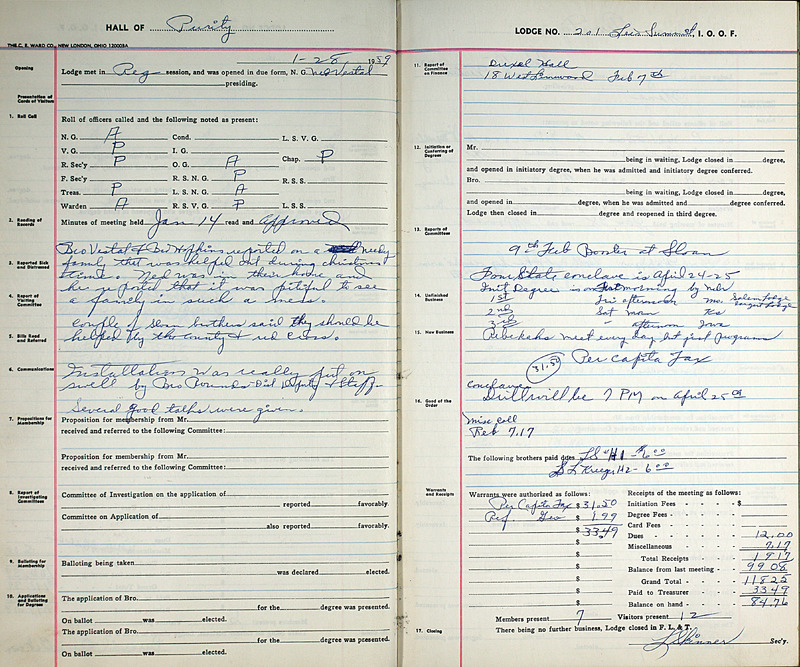 HALL OF Purity
THE C. E. WARD CO., NEW LONDON, OHIO 12000BA
1-28 1959
Opening
Lodge met in Reg session, and was opened in due form, N. G. Ned Vestal
presiding.
Presentation of Cards of Visitors
1. Roll Call
Roll of officers called and the following noted as present:
N. G. A Cond. L. S. V. G.
V. G. P I. G. Chap. P
R. Sec'y P O. G. A
F. Sec'y R. S. N. G. P R. S. S.
Treas. P L. S. N. G. A
Warden A R. S. V. G. P L. S. S.
2. Reading of Records
Minutes of meeting held Jan 14 read and approved
Bro Vestal & Bro Hopkins reported on a needy
3. Reported Sick and Distressed
family that was helped out during christmas
time. Ned was in their home and
he reported that it was pitiful to see
4. Report of Visiting Committee
a family in such a mess.
couple of Sloan brothers said they should be
5. Bills Read and Referred
helped by the county & red cross.
6. Communications
Installation was really put on
well by Bro Pounds Dist Deputy & Staff
Several good talks were given.
7. Propositions for Membership
Proposition for membership from Mr.
received and referred to the following Committee:
Proposition for membership from Mr.
received and referred to the following Committee:
8. Report of Investigating Committees
Committee of Investigation on the application of
reported favorably.
Committee on Application of
also reported favorably.
9. Balloting for Membership
Balloting being taken
was declared elected.
10. Applications and Balloting for Degrees
The application of Bro.
for the degree was presented.
On ballot was elected.
The application of Bro.
for the degree was presented.
On ballot was elected.
LODGE NO. 201 Lees Summit, I. O. O. F.
11. Report of Committee on Finance
Drexel Hall
18 West Linwood Feb 7th
12. Initiation or Conferring of Degrees
Mr.
being in waiting, Lodge closed in degree,
and opened in initiatory degree, when he was admitted and initiatory degree conferred.
Bro.
being in waiting, Lodge closed in degree,
and opened in degree, when he was admitted and degree conferred.
Lodge then closed in degree and reopened in third degree.
13. Reports of Committees
9th Feb Booster at Sloan
Four State conclave is April 24-25
Init Degree is on morning by
14. Unfinished Business
1st Fri afternoon Mo. Salem Lodge
2nd Sat morn Ks
3rd " afternoon Iowa
15. New Business
Rebekahs meet every day but just programs
31.50 Per Capita Tax
conclave
16. Good of the Order
Drill will be 7 PM on April 25th
Misc Coll
Reb 7.17
The following brothers paid dues LS #1 - $6.00
S L Krueger H2 - 6.00
Warrants and Receipts
Warrants were authorized as follows:
Per Capita Tax $ 31.50
Ref $ 1.99
$ 33.49
$
$
$
$
$
$
Receipts of the meeting as follows:
Initiation Fees - $
Degree Fees -
Card Fees -
Dues - 12.00
Miscellaneous - 7.17
Total Receipts - 19.17
Balance from last meeting - 99.08
Grand Total - 118.25
Paid to Treasurer - 33.49
Balance on hand - 84.76
Members present 7 Visitors present 12
17. Closing
There being no further business, Lodge closed in F. L. & T.
L Skinner Sec'y.